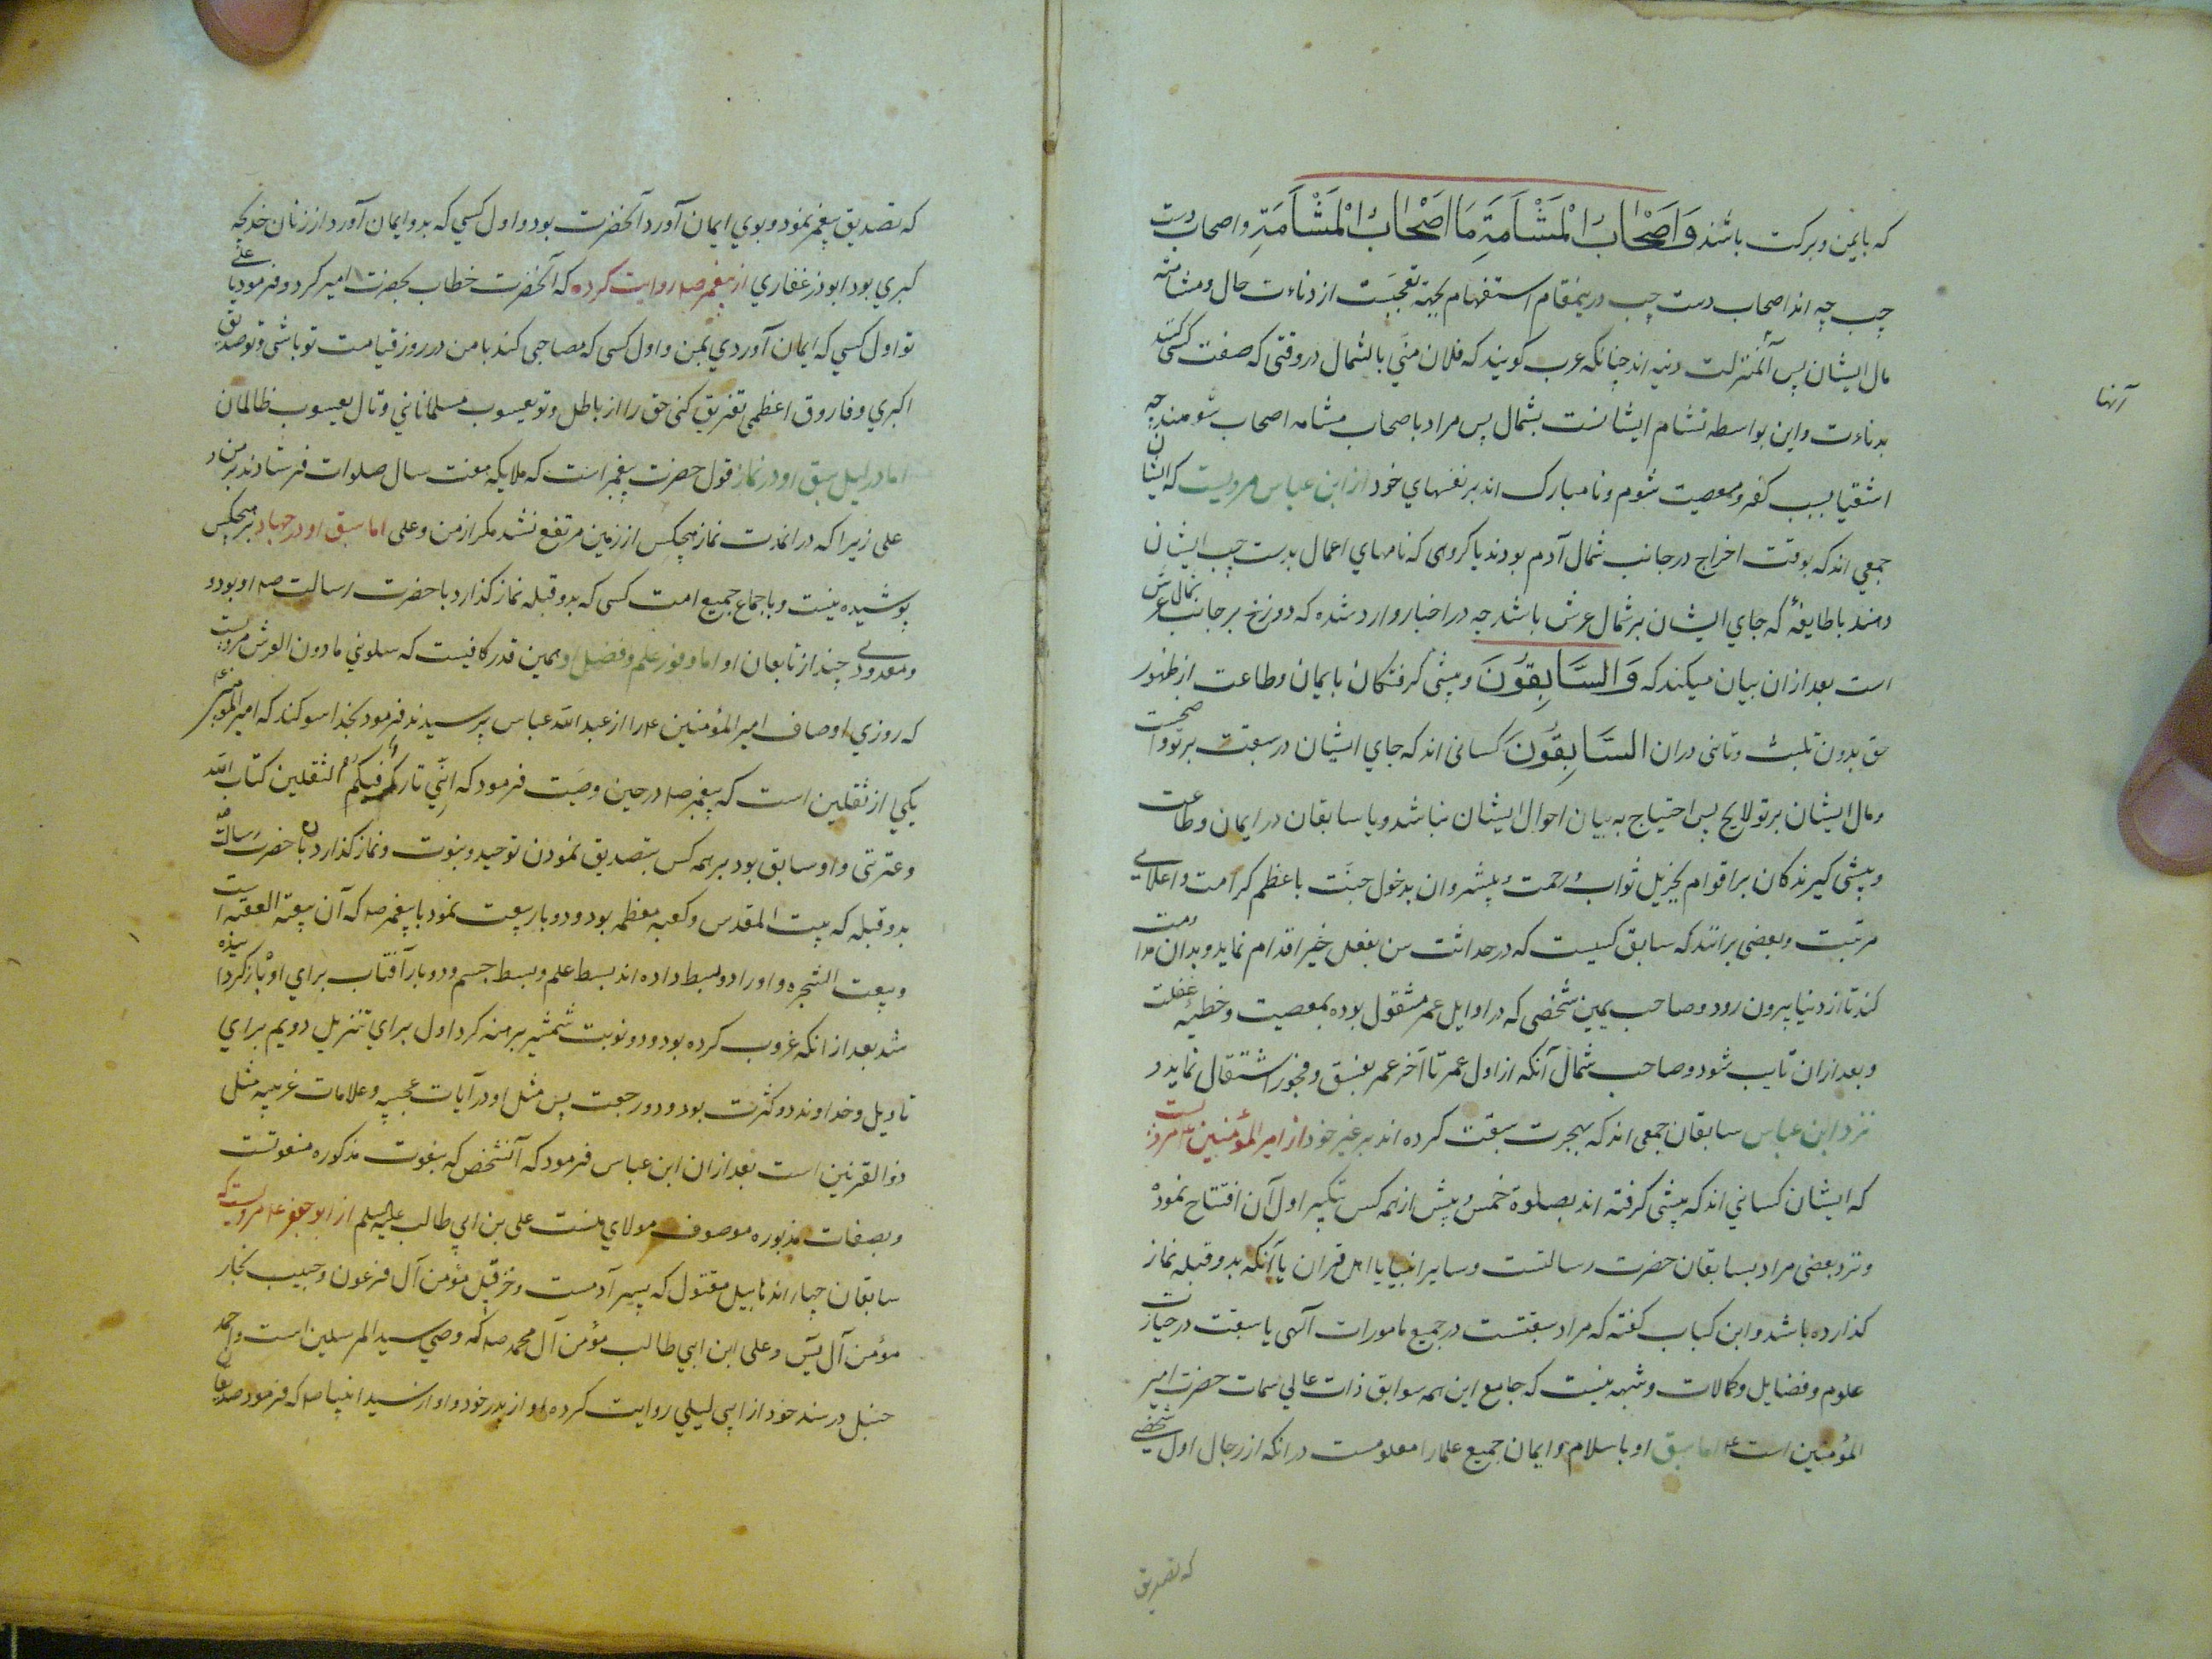 که بایمن و برکت باشند وَاَصْحَابُ الْمَشْاَمَةِ مَا اَصْحَابُ الْمَشْاَمَةِ و اصحاب دست
چپ چه اند اصحاب دست چپ درینمقام استفهام بجهة تعجبست از دناءت حال و مشامه
مال ایشان پس آنمنزلت دنیه اند چنانکه عرب کویند که فلان منّی بالشمال در وقتی که صفت کسی کنند
بدناءت و این بواسطه تشام ایشانست بشمال پس مراد باصحاب مشامه اصحاب شومند چه
اشقیا بسبب کفر و معصیت شوم و نامبارک اند بر نفسهای خود از ابن عباس مرویست که ایشان
جمعی اند که بوقت اخراج در جانب شمال آدم بودند یا کروهی که نامهای اعمال بدست چپ ایشان
دهند یا طایفهٔ که جای ایشان بر شمال عرش باشد چه در اخبار وارد شده که دوزخ بر جانب شمال عرش
است بعد ازان بیان میکند که وَالسَّابِقُونَ و پیشی کرفتکان بایمان و طاعت از ظهور
حق بدون تلبث و تانی دران السَّابِقُونَ کسانی اند که جای ایشان در سبقت بر تو واضحست
و مال ایشان بر تو لایح پس احتیاج به بیان احوال ایشان نباشد و یا سابقان در ایمان و طاعت
و پیشی کیرندکان بر اقوام بجزیل ثواب و رحمت و پیشروان بدخول جنّت باعظم کرامت و اعلای
مرتبت و بعضی برانند که سابق کسیست که در حداثت سن بفعل خیر اقدام نماید و بدان مداومت
کند تا از دنیا بیرون رود و صاحب یمین شخصی که در اوایل عمر مشغول بوده بمعصیت و خطیه غفلت
و بعد ازان تایب شود و صاحب شمال آنکه از اول عمر تا آخر عمر بفسق و فجور اشتغال نماید و
نزد ابن عباس سابقان جمعی اند که بهجرت سبقت کرده اند بر غیر خود از امیر المؤمنین ع مرویست
که ایشان کسانی اند که پیشی کرفته اند بصلوة خمس و پیش از همه کس تکبیر اول آن افتتاح نموده
و نزد بعضی مراد بسابقان حضرت رسالتست و سایر انبیا یا اهل قران یا آنکه بدو قبله نماز
کذارده باشد و ابن کیسان کفته که مراد سبقتست در جمیع مامورات آلهی یا سبقت در حیازت
علوم و فضایل و کمالات و شبهه نیست که جامع این همه سوابق ذات عالی سمات حضرت امیر
المؤمنین است ع اما سبق او باسلام و ایمان جمیع علما را معلومست در انکه از رجال اول شخصی
که تصدیق
آنها
که تصدیق پیغمبر نمود و بوی ایمان آورد آنحضرت بود و اول کسی که بدو ایمان آورد از زنان خدیجه
کبری بود ابوذر غفاری از پیغمبر صه روایت کرده که آنحضرت خطاب بحضرت امیر کرد و فرمود یا علی
تو اول کسی که ایمان آوردی بمن و اول کسی که مصاحبی کند با من در روز قیامت تو باشی و تو صدیق
اکبری و فاروق اعظمی تفریق کنی حق را از باطل و تو یعسوب مسلمانانی و مال یعسوب ظالمان
اما دلیل سبق او در نماز قول حضرت پیغمبر است که ملایکه هفت سال صلوات فرستادند بر من و
علی زیرا که در انمدت نماز هیچکس از زمین مرتفع نشد مکر از من و علی اما سبق او در جهاد بر هیچکس
پوشیده نیست و باجماع جمیع امت کسی که بدو قبله نماز کذارد با حضرت رسالت صه او بود و
و معدودی چند از تابعان او اما وفور علم و فضل او همین قدر کافیست که سلونی مادون العرش مرویست
که روزی اوصاف امیر المؤمنین ع را از عبد الله عباس پرسیدند فرمود بخدا سوکند که امیر المؤمنین ع
یکی از ثقلین است که پیغمبر صه در حین وصیت فرمود که اِنّی تارک فیکم الثقلین کتاب الله
و عترتی و او سابق بود بر همه کس بتصدیق نمودن توحید و نبوت و نماز کذارد با حضرت رسالت صه
بدو قبله که بیت المقدس و کعبه معظمه بود و دو بار بیعت نمود با پیغمبر صه که آن بیعة العقبه است
و بیعت الشجره و او را دو بسط داده اند بسط علم و بسط جسم و دو بار آفتاب برای او باز کردانیده
شد بعد از انکه غروب کرده بود و دو نوبت شمشیر برهنه کرد اول برای تنزیل دویم برای
تاویل و خداوند دو کثرت بود و دو رجعت پس مثل او در آیات عجیبه و علامات غریبه مثل
ذوالقرنین است بعد ازان ابن عباس فرمود که آنشخص که بنعوت مذکوره منعوتست
و بصفات مذبوره موصوف مولای منست علی بن ابی طالب علیه السلم از ابو جعفر ع مرویست که
سابقان چهار اند هابیل مقتول که پسر آدمست و حزقیل مؤمن آل فرعون و حبیب نجار
مؤمن آل یس و علی ابن ابی طالب مؤمن آل محمد صه که وصی سید المرسلین است و احمد
حنبل در مسند خود از ابی لیلی روایت کرده و او از پدر خود و او از سید انبیا صه که فرمود صدیقان